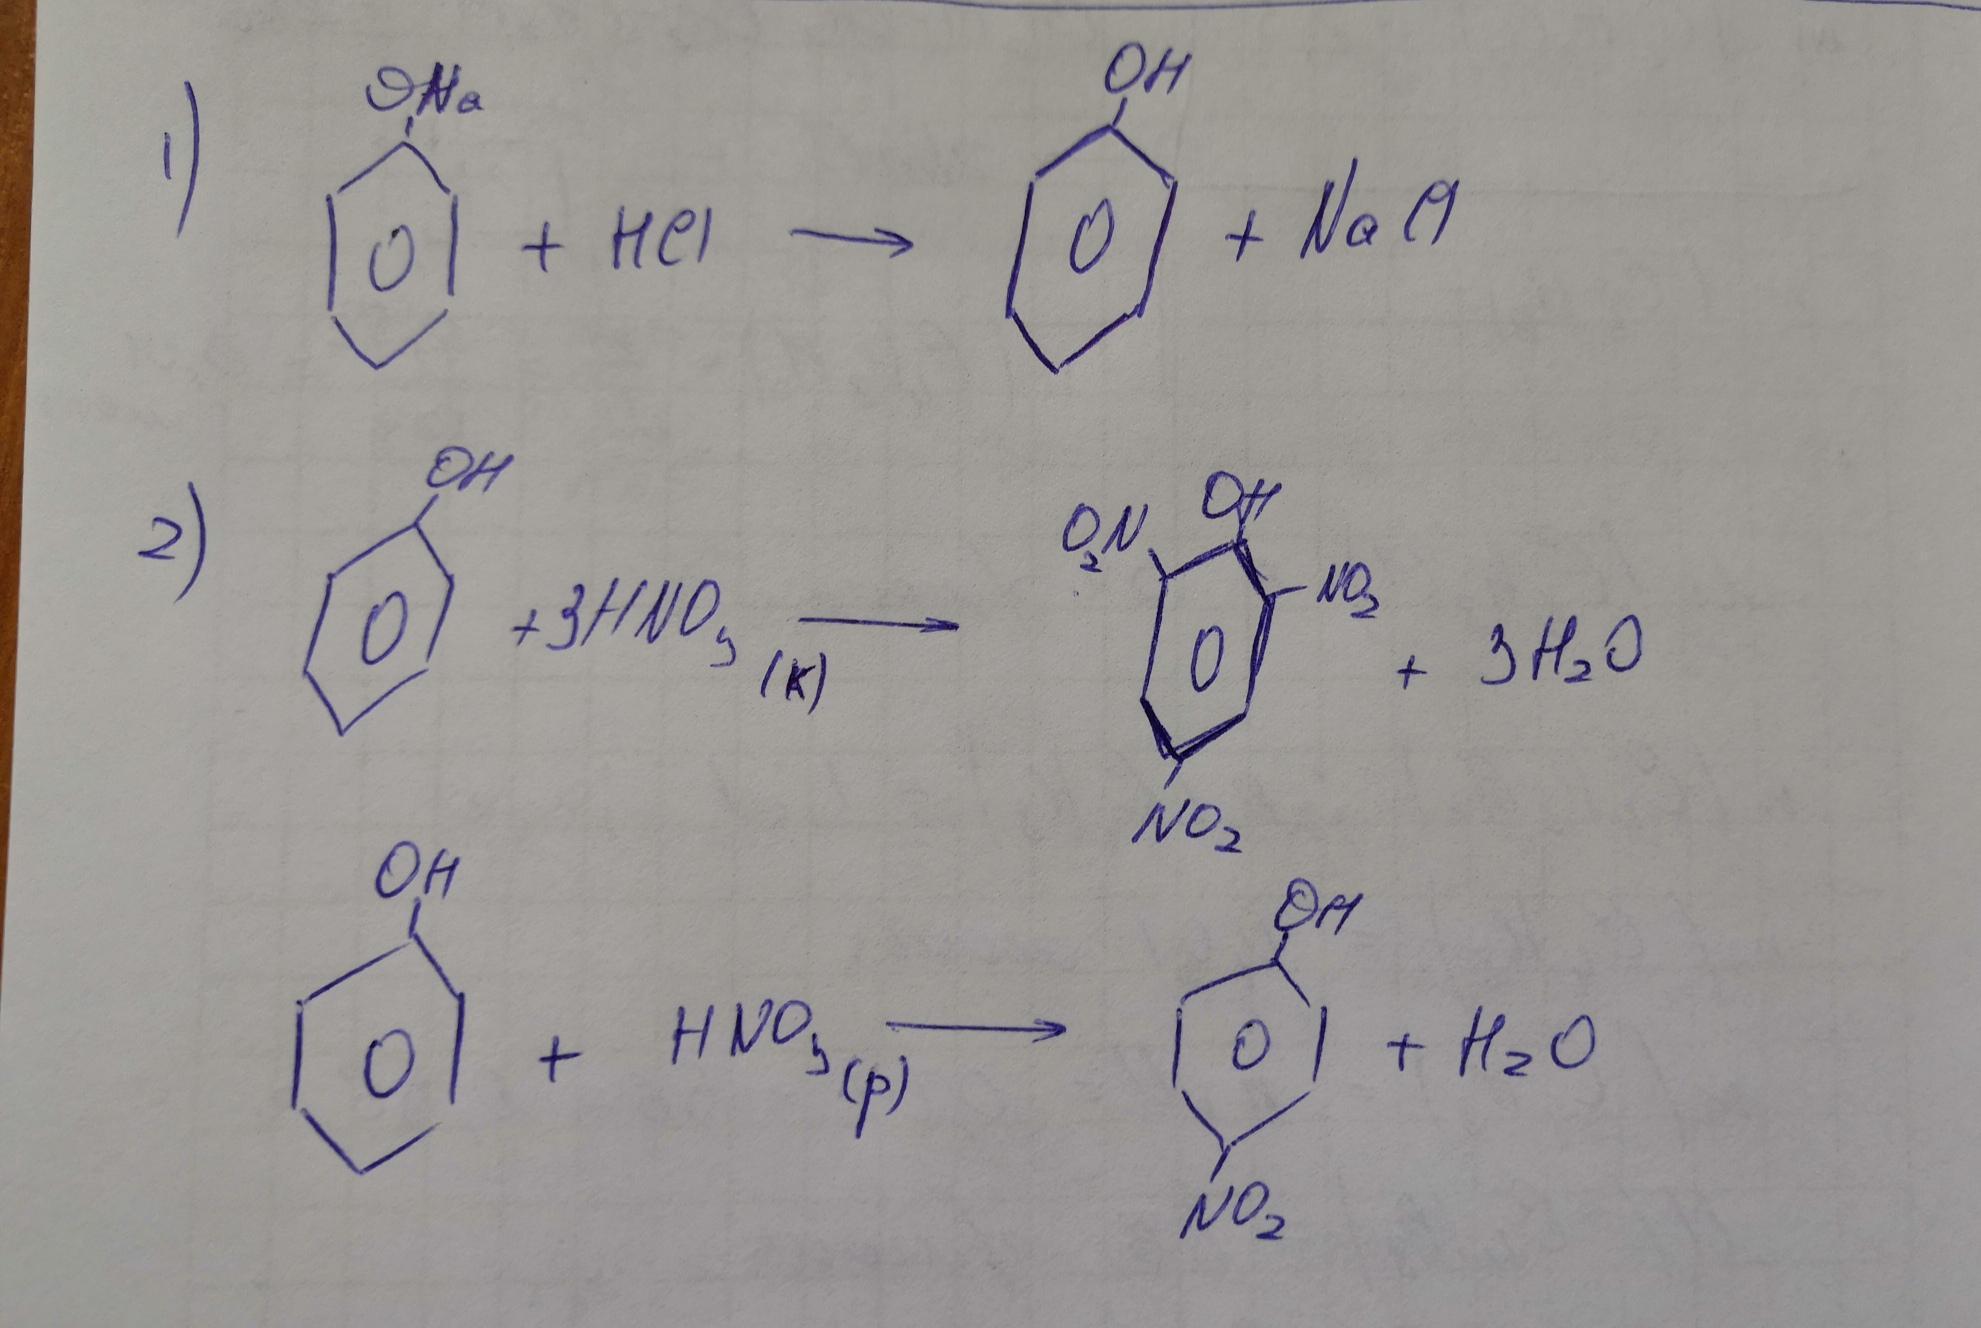 1) ONa + HCl → OH + NaCl
2) OH +3HNO3 (к) → O2N OH NO2 NO2 + 3H2O
OH + HNO3 (р) → OH NO2 + H2O